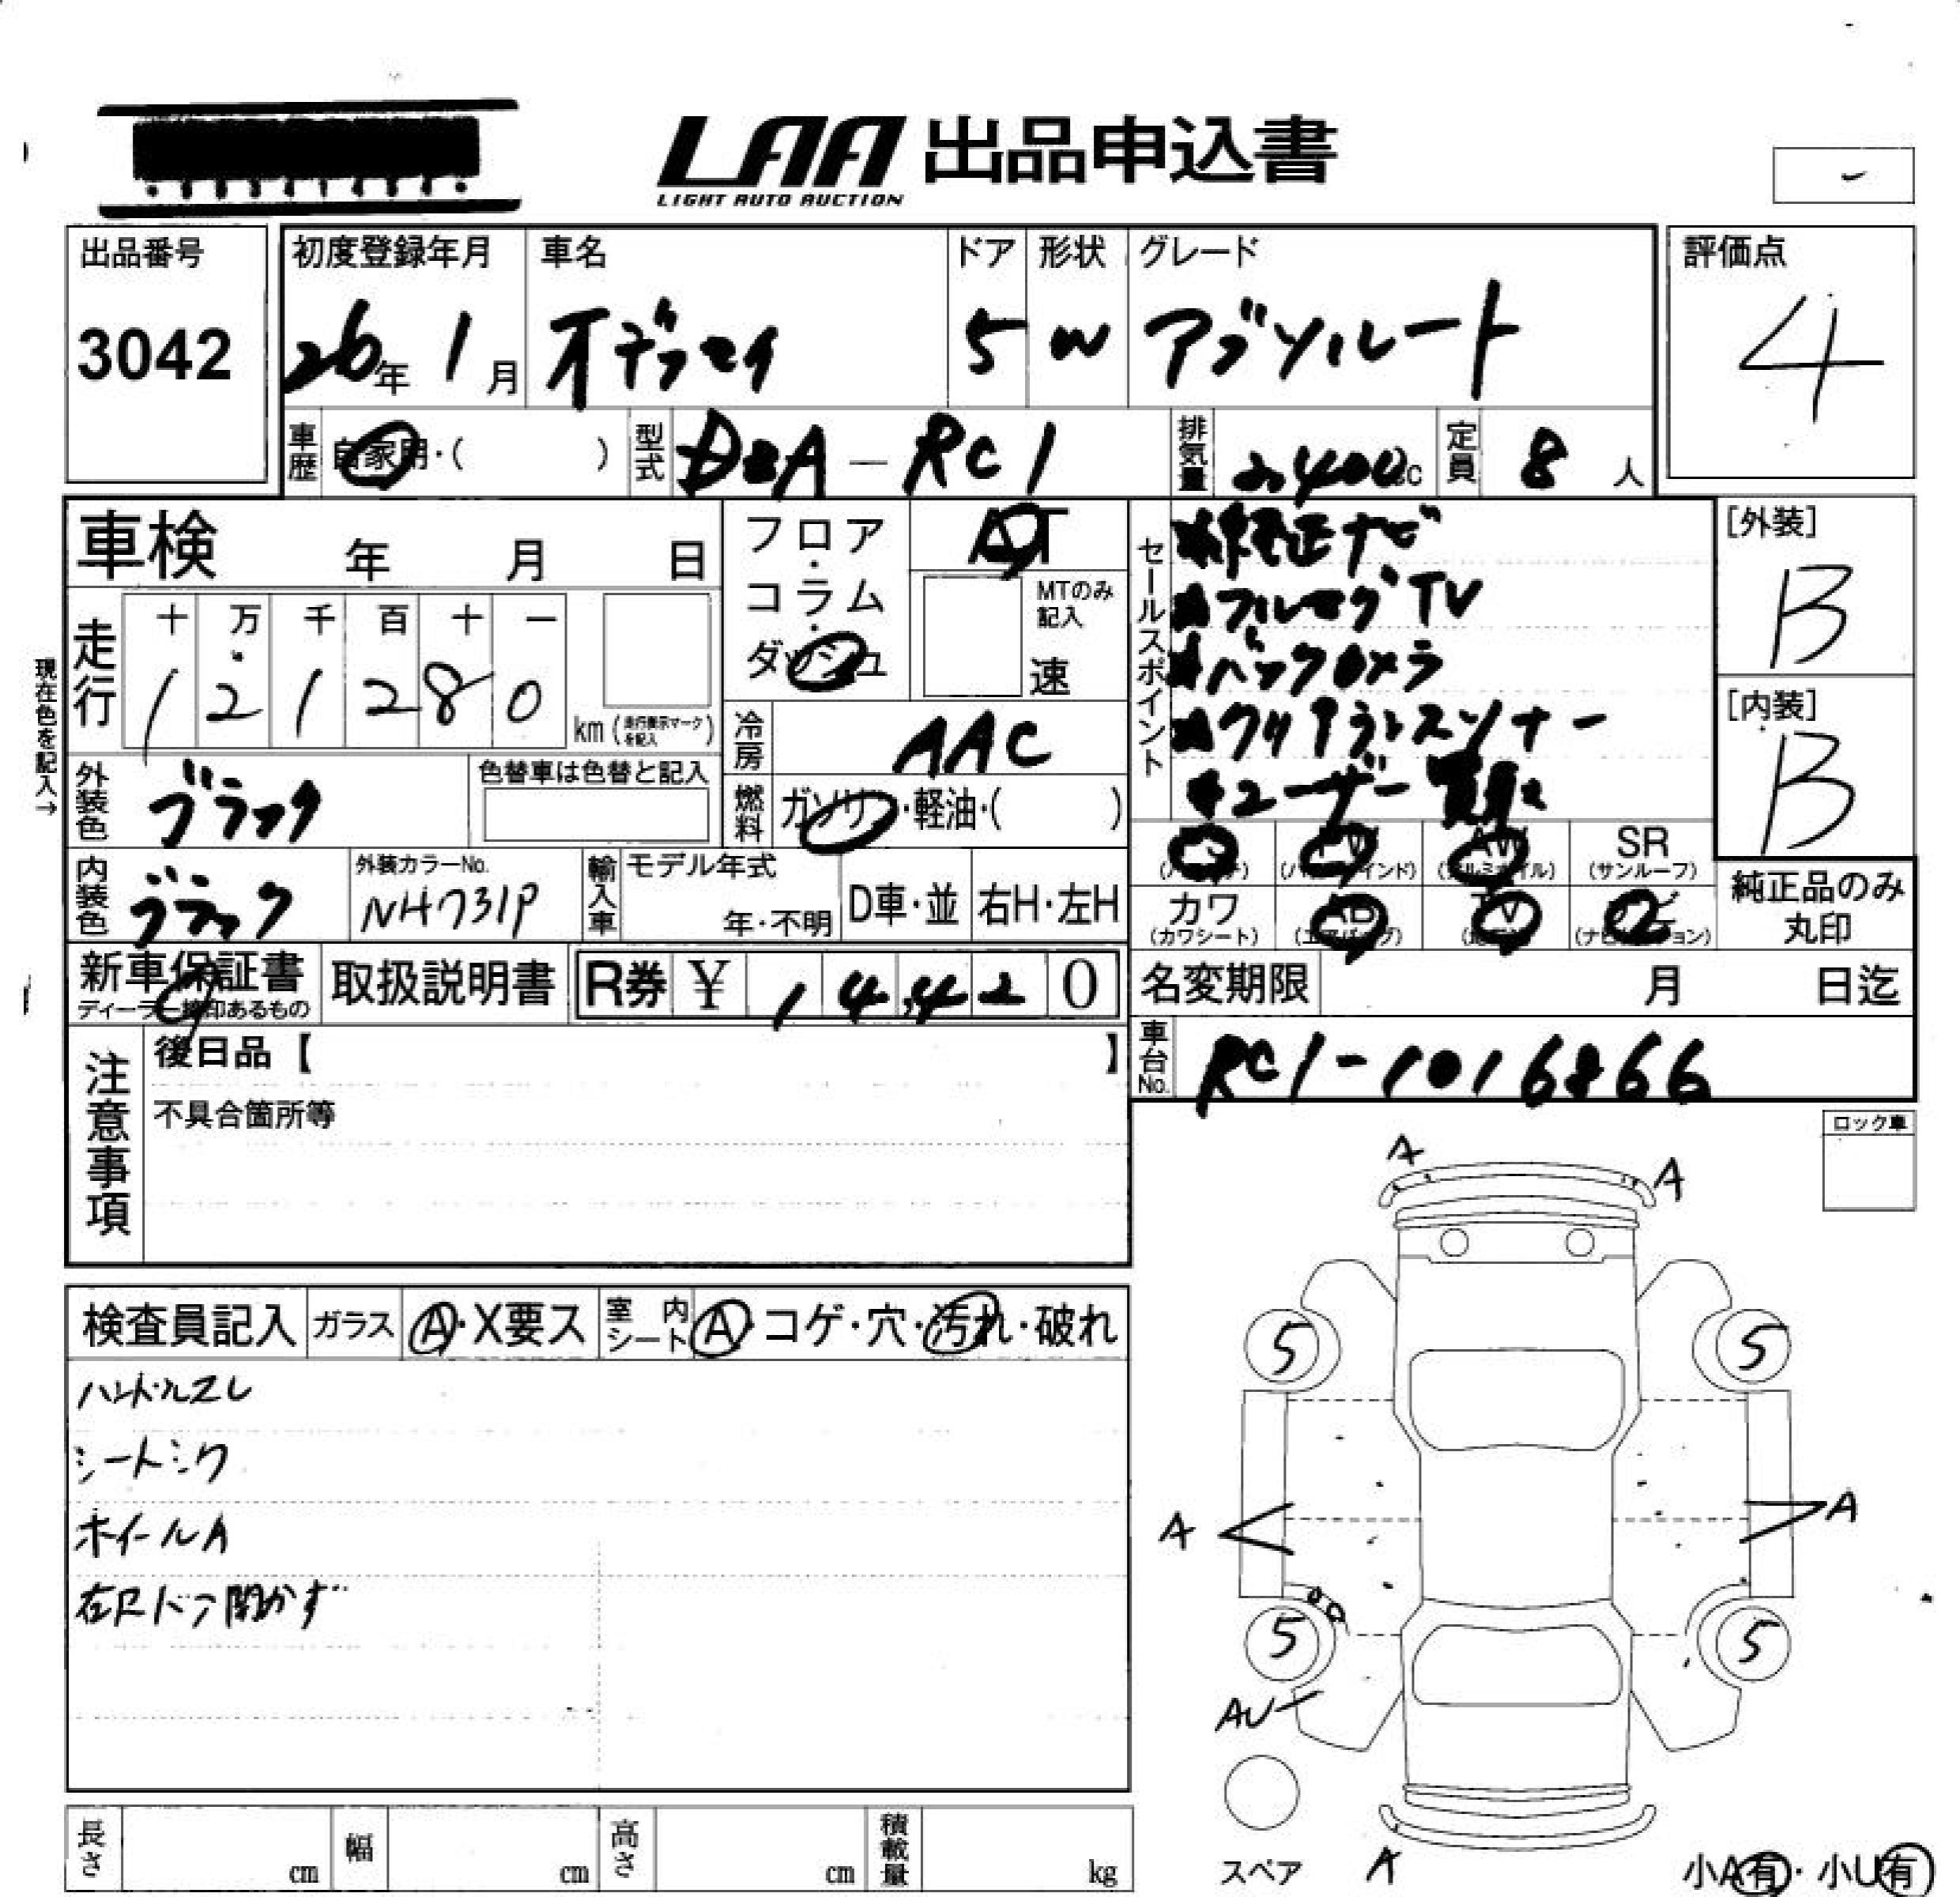 LAA 出品申込書
LIGHT AUTO AUCTION
出品番号 初度登録年月 車名 ドア 形状 グレード 評価点
3042 26年 1月 オデッセイ 5 W アブソルート 4
車歴 自家用・( ) 型式 DBA-RC1 排気量 2,400cc 定員 8人
車検 年 月 日
フロア・コラム・ダッシュ
AT
MTのみ記入
速
セールスポイント
純正ナビ
フルセグTV
バックカメラ
クリアランスソナー
ユーザー買取
[外装]
B
[内装]
B
現在色を記入→
走行 十 万 千 百 十 一
1 2 1 2 8 0 km (走行表示マークを記入)
冷房 AAC
外装色 ブラック 色替車は色替と記入
燃料 ガソリン・軽油・( )
SR
(サンルーフ)
内装色 ブラック 外装カラーNo. NH731P
輸入車 モデル年式 年・不明 D車・並 右H・左H
カワ AB TV ナビ
(カワシート) (エアバッグ) (ナビゲーション)
純正品のみ丸印
新車保証書 取扱説明書 R券 ¥ 14,420
ディーラー捺印あるもの
名変期限 月 日迄
車台No. RC1-1016866
注意事項
後日品【 】
不具合箇所等
ロック車
検査員記入 ガラス A・X要ス 室内シート A・コゲ・穴・汚れ・破れ
ハンドルスレ
シートシワ
ホイールA
右Rドア開かず
A A
5 5
A A
5 5
AU
スペア A
小A有・小U有
長さ cm 幅 cm 高さ cm 積載量 kg